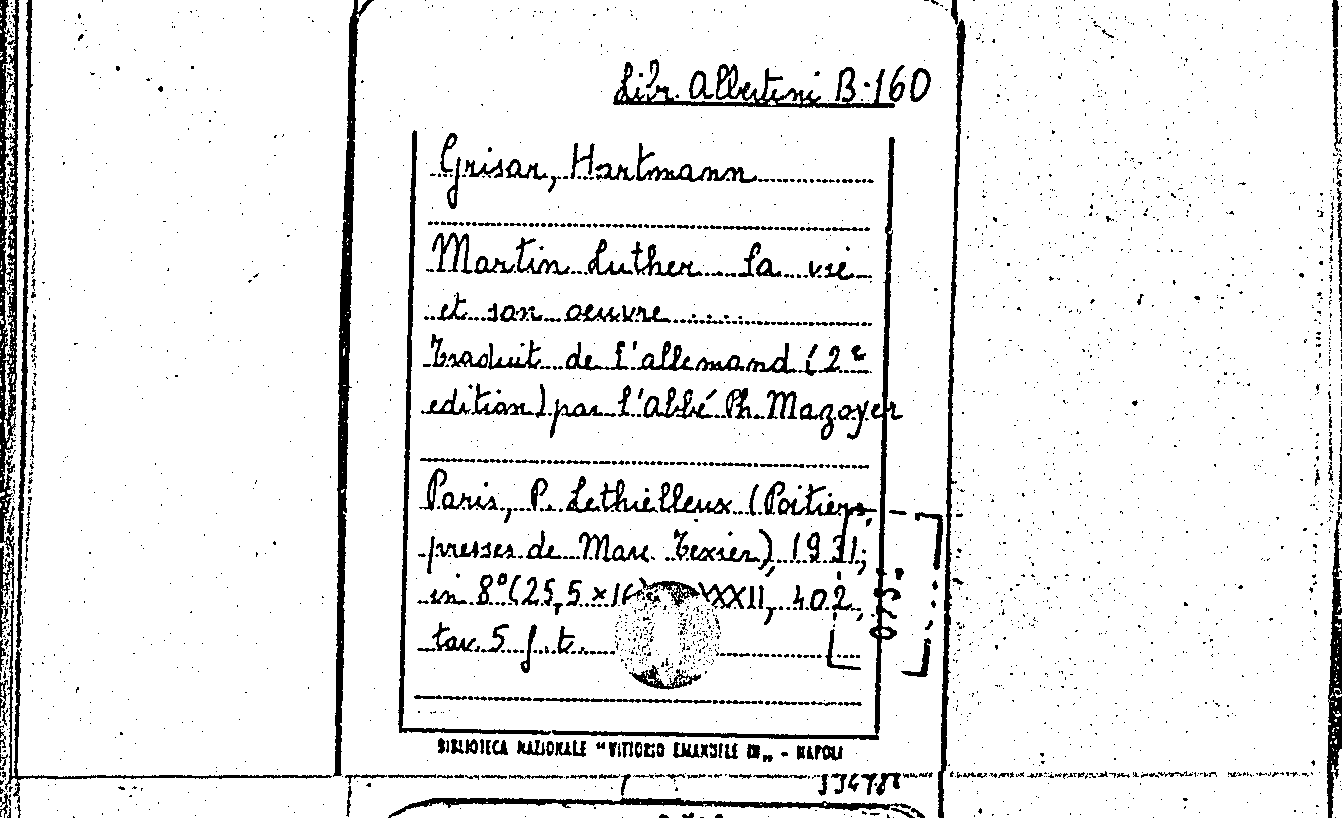 Libr. Albertini B.160
Grisar, Hartmann
Martin Luther sa vie
et son oeuvre ....
Traduit de l'allemand (2e
edition) par l'abbé Ph. Mazoyer
Paris, P. Lethielleux (Poitiers,
presses de Marc Texier), 1931;
in 8°(25,5 × 16 XXXII, 402,
tav. 5 f.t.
BIBLIOTECA NAZIONALE "VITTORIO EMANUELE III" - NAPOLI